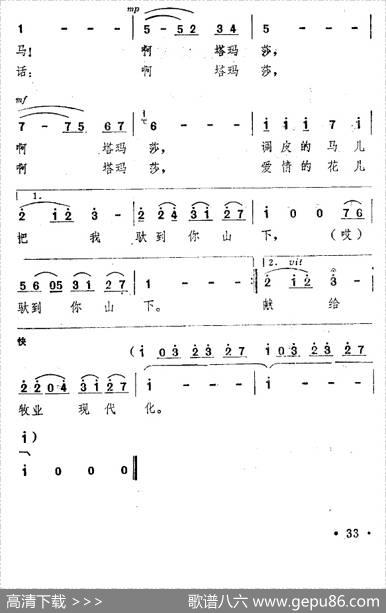 mp
1 - - - | 5 - 5 5 2 3 2 4 | 5 - - - |
马! 啊 塔玛 莎,
话: 啊 塔玛 莎,
mf
7 - 7 5 6 7 | 6 - - - | i i i i |
啊 塔玛 莎, 调皮的马儿
啊 塔玛 莎, 爱情的花儿
1.
2 i 2 3 - | 2 2 4 3 i 2 7 | i 0 0 7 6 |
把 我 驮到你山 下, (哎)
2. vit
5 6 0 5 3 1 2 7 | 1 - - - :| 2 i 2 3 - |
驮到 你 山 下。 献 给
快
( i 0 3 2 3 2 7 | i 0 3 2 3 2 7 |
2 2 0 4 3 i 2 7 | i - - - | i - - - |
牧业 现 代 化。
i )
i 0 0 0 ‖
• 33 •
高清下载 >>> 歌谱八六 www.gepu86.com